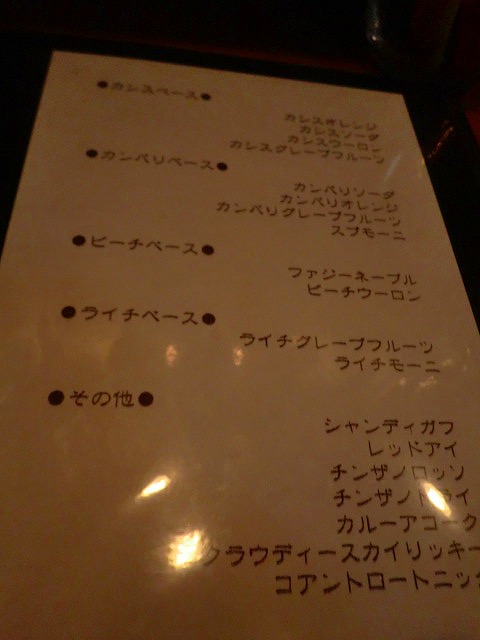 ●カシスベース●
カシスオレンジ
カシスソーダ
カシスウーロン
カシスグレープフルーツ
●カンベリベース●
カンベリソーダ
カンベリオレンジ
カンベリグレープフルーツ
スプモーニ
●ピーチベース●
ファジーネーブル
ピーチウーロン
●ライチベース●
ライチグレープフルーツ
ライチモーニ
●その他●
シャンディガフ
レッドアイ
チンザノロッソ
チンザノドライ
カルーアコーク
クラウディースカイリッキー
コアントロートニック